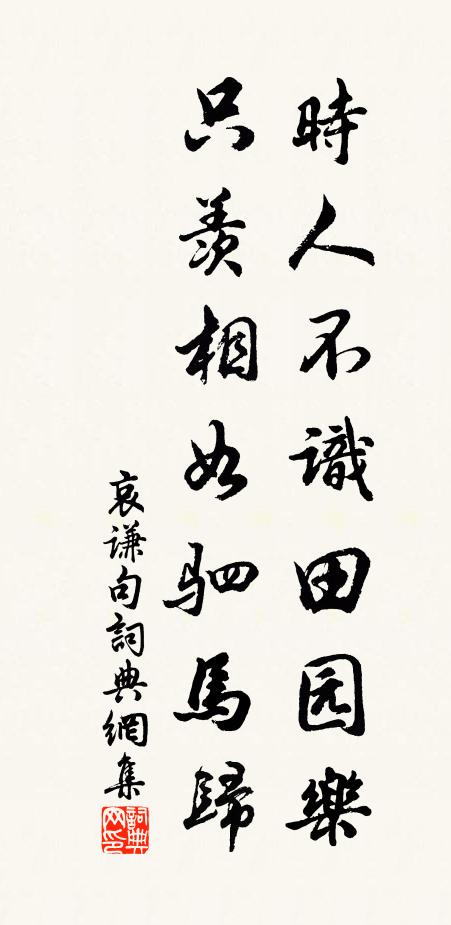 時人不識田园樂
只羨相如駟馬歸
哀謙句詞典網集
詞典网印